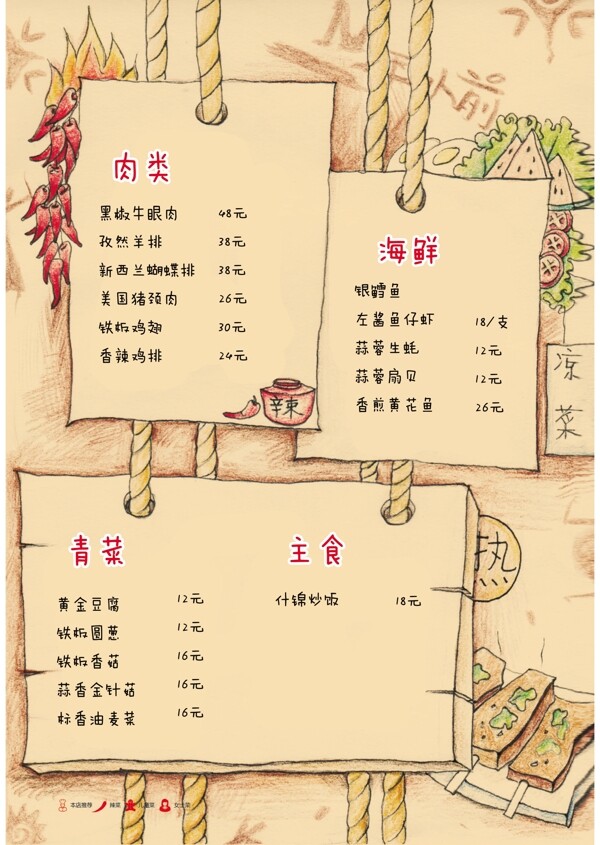 前
肉类
黑椒牛眼肉 48元
孜然羊排 38元
新西兰蝴蝶排 38元
美国猪颈肉 26元
铁板鸡翅 30元
香辣鸡排 24元
辣
海鲜
银鳕鱼
左酱鱼仔虾 18/支
蒜蓉生蚝 12元
蒜蓉扇贝 12元
香煎黄花鱼 26元
凉菜
青菜
黄金豆腐 12元
铁板圆葱 12元
铁板香菇 16元
蒜香金针菇 16元
标香油麦菜 16元
主食
什锦炒饭 18元
热
本店推荐 辣菜 儿童菜 女士菜